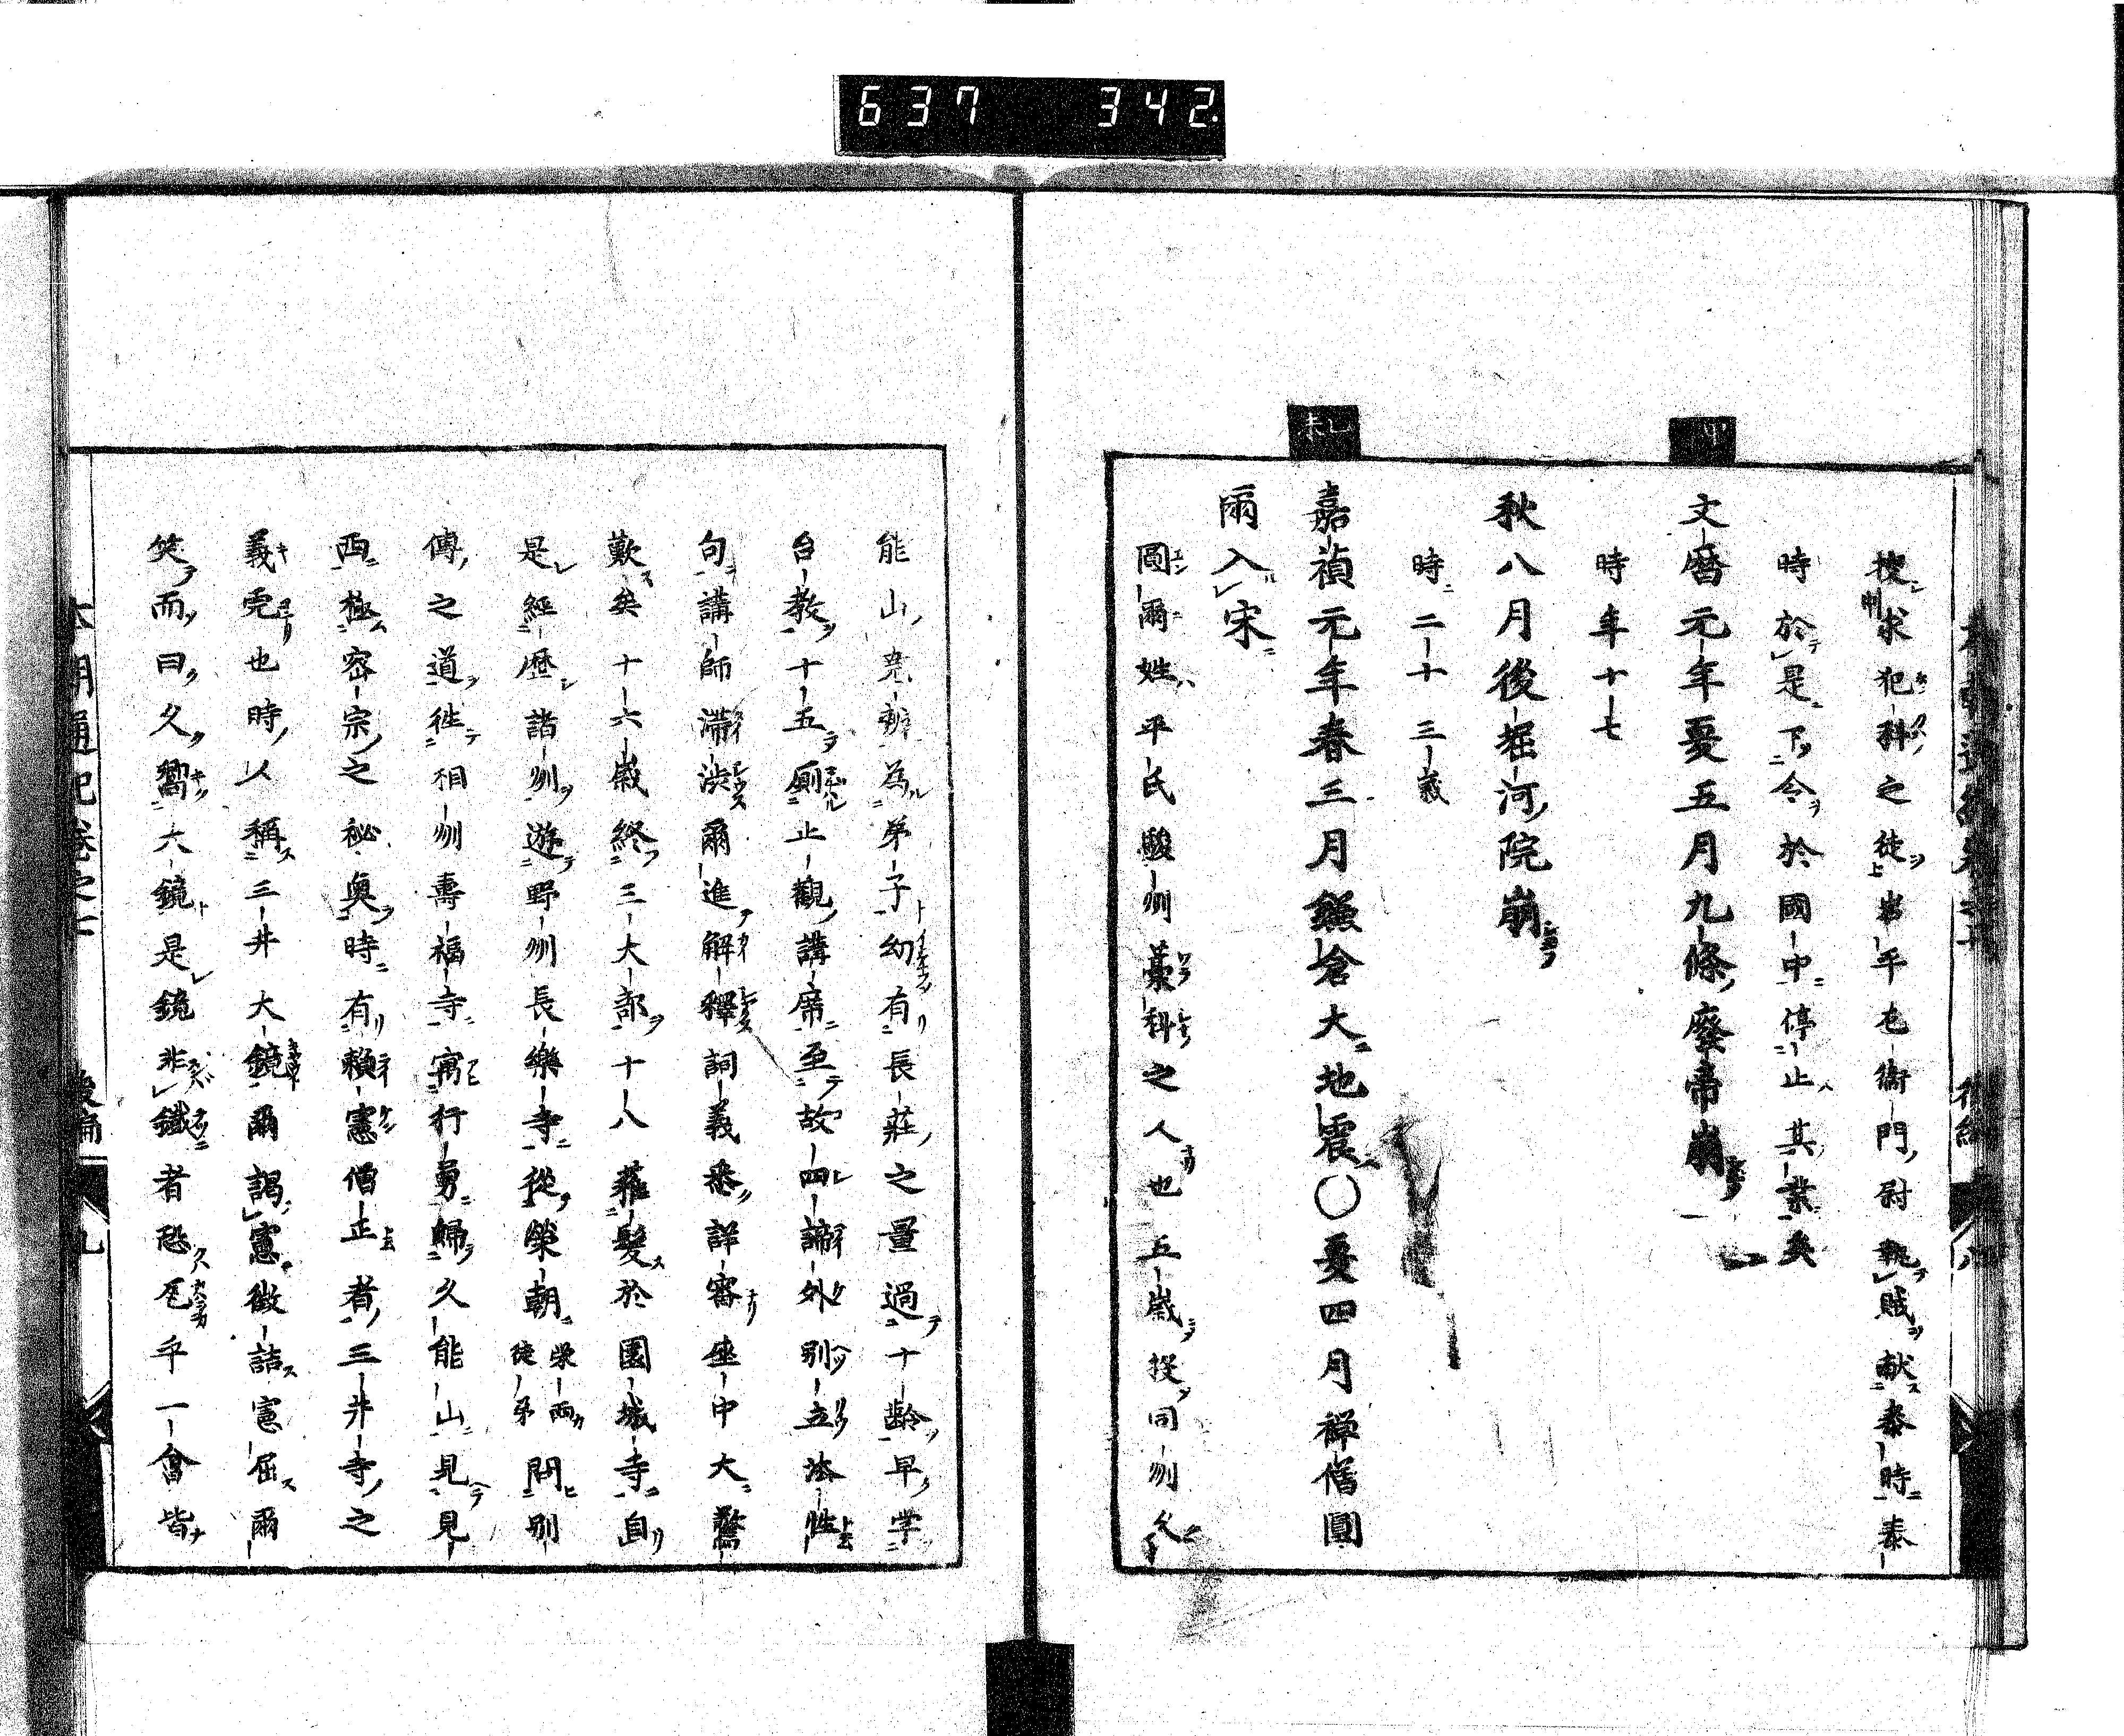 637 342
搜求犯科之徒岩平左衞門尉執賊献泰時泰
時於是下令於國中停止其業矣
文曆元年夏五月九條廢帝崩
時年十七
秋八月後堀河院崩
時二十三歳
嘉禎元年春三月鎌倉大地震〇夏四月禅僧圓
爾入宋
圓爾姓平氏駿州藁科之人也五歳投同州久
乙未
能山尭辨為弟子幼有長莊之量過十齡早学
台教十五厠止觀講席至故四諦外別立法性
句講師滞渋爾進解釋詞義悉詳審座中大驚
歎矣十六歳終三大部十八薙髮於園城寺自
是經歴諸州遊野州長樂寺從榮朝栄西徒弟問別
傳之道徃相州壽福寺寓行勇歸久能山見見
西極密宗之秘奥時有頼憲僧正者三井寺之
義虎也時人稱三井大鏡爾謁憲徴詰憲屈爾
笑而曰久嚮大鏡是鏡非鐵者恐瓦乎一會皆
本朝通紀卷之 後編 九